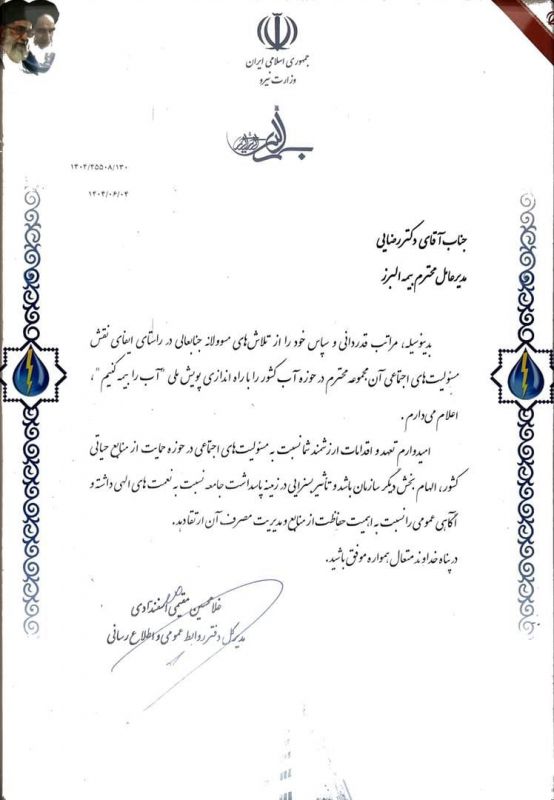 جمهوری اسلامی ایران
وزارت نیرو
۱۴۰۴/۲۵۵۰۸/۱۳۰
۱۴۰۴/۰۶/۰۴
جناب آقای دکتر رضایی
مدیرعامل محترم بیمه البرز
بدینوسیله، مراتب قدردانی و سپاس خود را از تلاش‌های مسوولانه جنابعالی در راستای ایفای نقش
مسئولیت‌های اجتماعی آن مجموعه محترم در حوزه آب کشور را با راه اندازی پویش ملی "آب را بیمه کنیم"،
اعلام می‌دارم.
امیدوارم تعهد و اقدامات ارزشمند شما نسبت به مسئولیت‌های اجتماعی در حوزه حمایت از منابع حیاتی
کشور، الهام بخش دیگر سازمان باشد و تأثیر بسزایی در زمینه پاسداشت جامعه نسبت به نعمت های الهی داشته و
آگاهی عمومی را نسبت به اهمیت حفاظت از منابع و مدیریت مصرف آن ارتقا دهد.
در پناه خداوند متعال همواره موفق باشید.
غلامحسین مقیمی اسفندآبادی
مدیرکل دفتر روابط عمومی و اطلاع رسانی